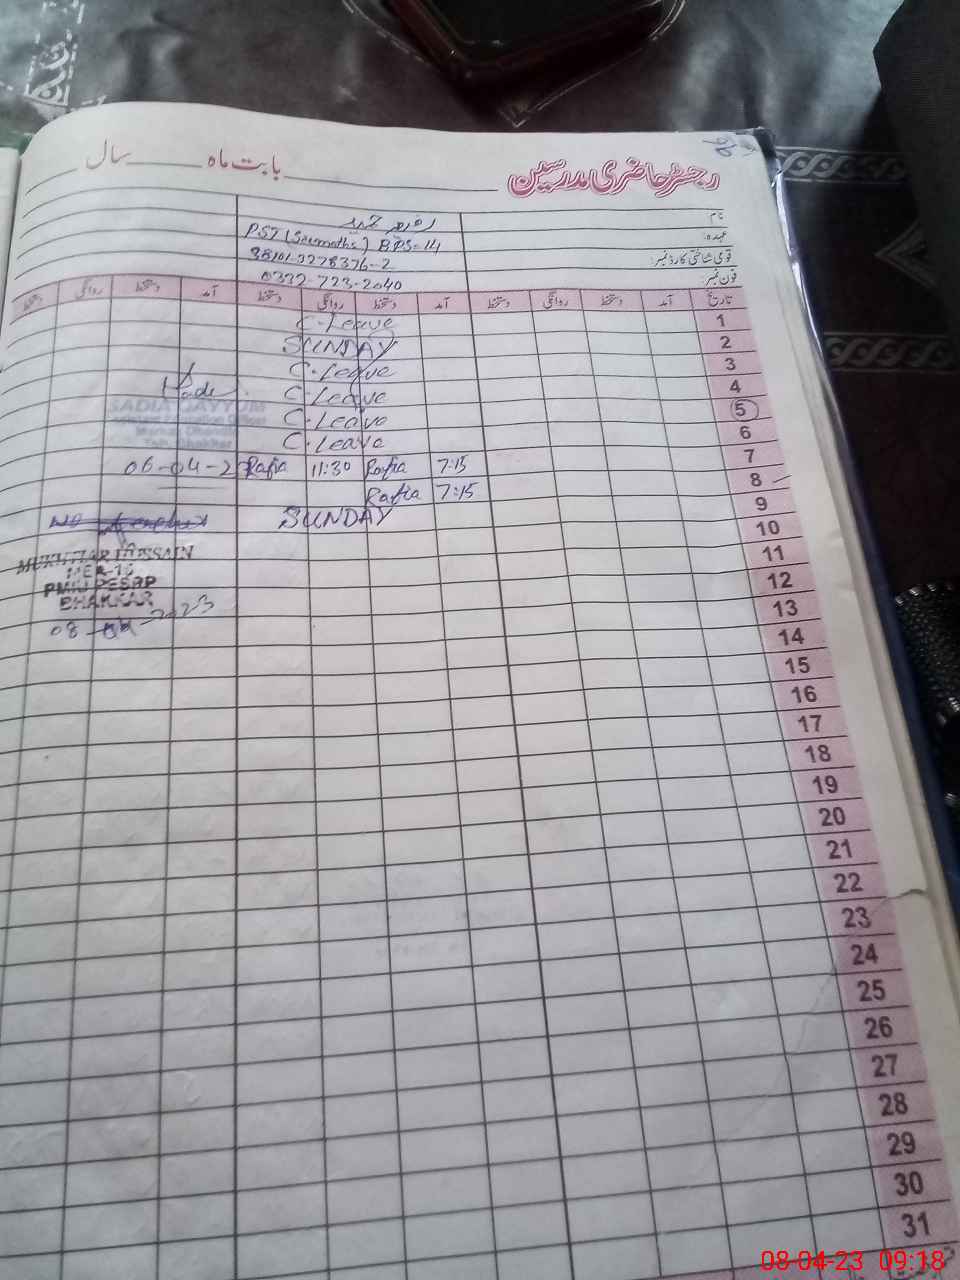 رجسٹر حاضری مدرسین بابت ماہ ______ سال ______
نام
عہدہ: PST (Sci math) BPS-14
قومی شناختی کارڈ نمبر:
فون نمبر: 0332-723-2040
تاریخ آمد دستخط روانگی دستخط آمد دستخط روانگی دستخط آمد دستخط روانگی دستخط
1 C-Leave
2 SUNDAY
3 C.Leave
4 C.Leave
5 C.Leave
6 C.Leave
SADIA QAYYUM
7 7:15 Rafia 11:30 Rafia
06-04-2
8 7:15 Rafia
9 SUNDAY
10
11
MUKHTIAR HUSSAIN
12
BHAKKAR
13
08-04-2023
14
15
16
17
18
19
20
21
22
23
24
25
26
27
28
29
30
31
08-04-23 09:18